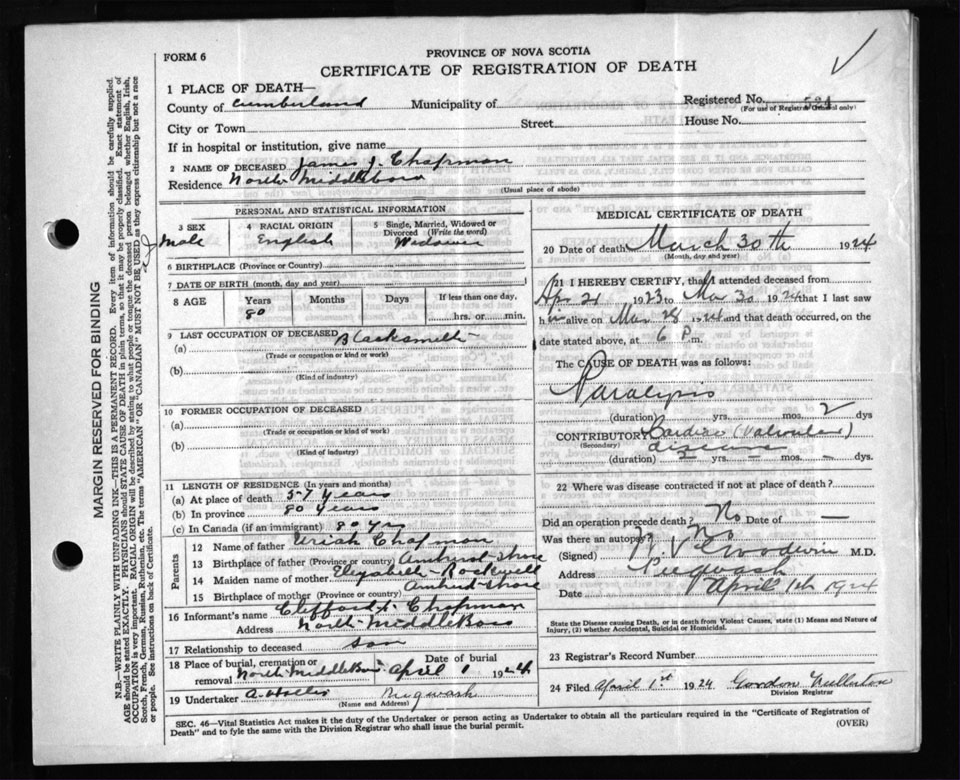 FORM 6
PROVINCE OF NOVA SCOTIA
CERTIFICATE OF REGISTRATION OF DEATH
1 PLACE OF DEATH—
County of Cumberland Municipality of Registered No. 584
(For use of Registrar General only)
City or Town Street House No.
If in hospital or institution, give name
2 NAME OF DECEASED James J. Chapman
Residence North Middleboro
(Usual place of abode)
PERSONAL AND STATISTICAL INFORMATION
3 SEX Male
4 RACIAL ORIGIN English
5 Single, Married, Widowed or Divorced (Write the word) Widower
6 BIRTHPLACE (Province or Country)
7 DATE OF BIRTH (month, day and year)
8 AGE Years 80 Months Days If less than one day, hrs. or min.
9 LAST OCCUPATION OF DECEASED
(a) Blacksmith
(Trade or occupation or kind or work)
(b)
(Kind of industry)
10 FORMER OCCUPATION OF DECEASED
(a)
(Trade or occupation or kind of work)
(b)
(Kind of industry)
11 LENGTH OF RESIDENCE (In years and months)
(a) At place of death 57 Years
(b) In province 80 Years
(c) In Canada (if an immigrant) 80 Yrs
Parents
12 Name of father Uriah Chapman
13 Birthplace of father (Province or country) Amherst Shore
14 Maiden name of mother Elizabeth Rockwell
15 Birthplace of mother (Province or country) Amherst Shore
16 Informant's name Clifford Chapman
Address North Middleboro
17 Relationship to deceased Son
18 Place of burial, cremation or removal North Middleboro Date of burial April 1 1924
19 Undertaker A. Hollis Pugwash
(Name and Address)
MEDICAL CERTIFICATE OF DEATH
20 Date of death March 30th 1924
(Month, day and year)
21 I HEREBY CERTIFY, that I attended deceased from
Apr 21 1923 to Mar 30 1924 that I last saw
him alive on Mar 28 1924 and that death occurred, on
date stated above, at 6 P.m.
The CAUSE OF DEATH was as follows:
Paralysis
(duration) yrs. mos. 2 dys
CONTRIBUTORY Cardiac (Valvular)
(Secondary) disease
(duration) — yrs. — mos. — dys.
22 Where was disease contracted if not at place of death?
Did an operation precede death? No Date of —
Was there an autopsy? No
(Signed) Goodwin M.D.
Address Pugwash
Date April 1th 1924
State the Disease causing Death, or in death from Violent Causes, state (1) Means and Nature of Injury, (2) whether Accidental, Suicidal or Homicidal.
23 Registrar's Record Number
24 Filed April 1st 1924 Gordon Fullerton
Division Registrar
SEC. 46—Vital Statistics Act makes it the duty of the Undertaker or person acting as Undertaker to obtain all the particulars required in the "Certificate of Registration of
Death" and to fyle the same with the Division Registrar who shall issue the burial permit. (OVER)
MARGIN RESERVED FOR BINDING
N.B.—WRITE PLAINLY WITH UNFADING INK—THIS IS A PERMANENT RECORD. Every item of information should be carefully supplied.
AGE should be stated EXACTLY. PHYSICIANS should STATE CAUSE OF DEATH in plain terms, so that it may be properly classified. Exact statement of
OCCUPATION is very important. RACIAL ORIGIN will be described by stating to what people or tongue the deceased person belonged, whether English, Irish,
Scotch, French, German, Russian, Ruthenian, etc. The terms "AMERICAN" OR "CANADIAN" MUST NOT BE USED as they express citizenship but not a race
or people. See instructions on back of Certificate.